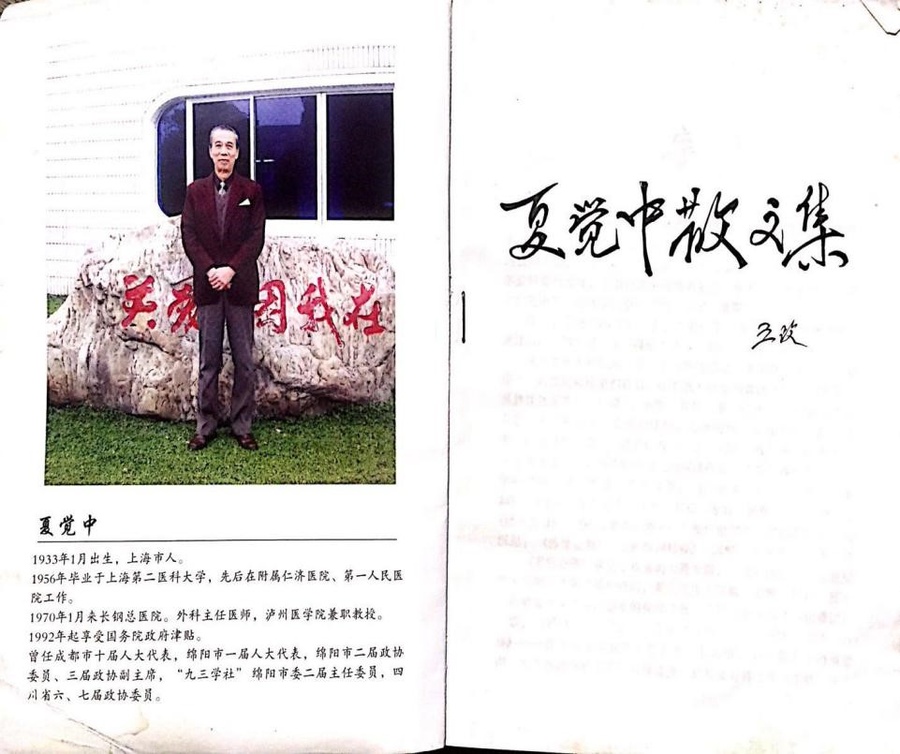 关 因我在
夏觉中
1933年1月出生，上海市人。
1956年毕业于上海第二医科大学，先后在附属仁济医院、第一人民医
院工作。
1970年1月来长钢总医院。外科主任医师，泸州医学院兼职教授。
1992年起享受国务院政府津贴。
曾任成都市十届人大代表，绵阳市一届人大代表，绵阳市二届政协
委员、三届政协副主席，“九三学社”绵阳市委二届主任委员，四
川省六、七届政协委员。
夏觉中散文集